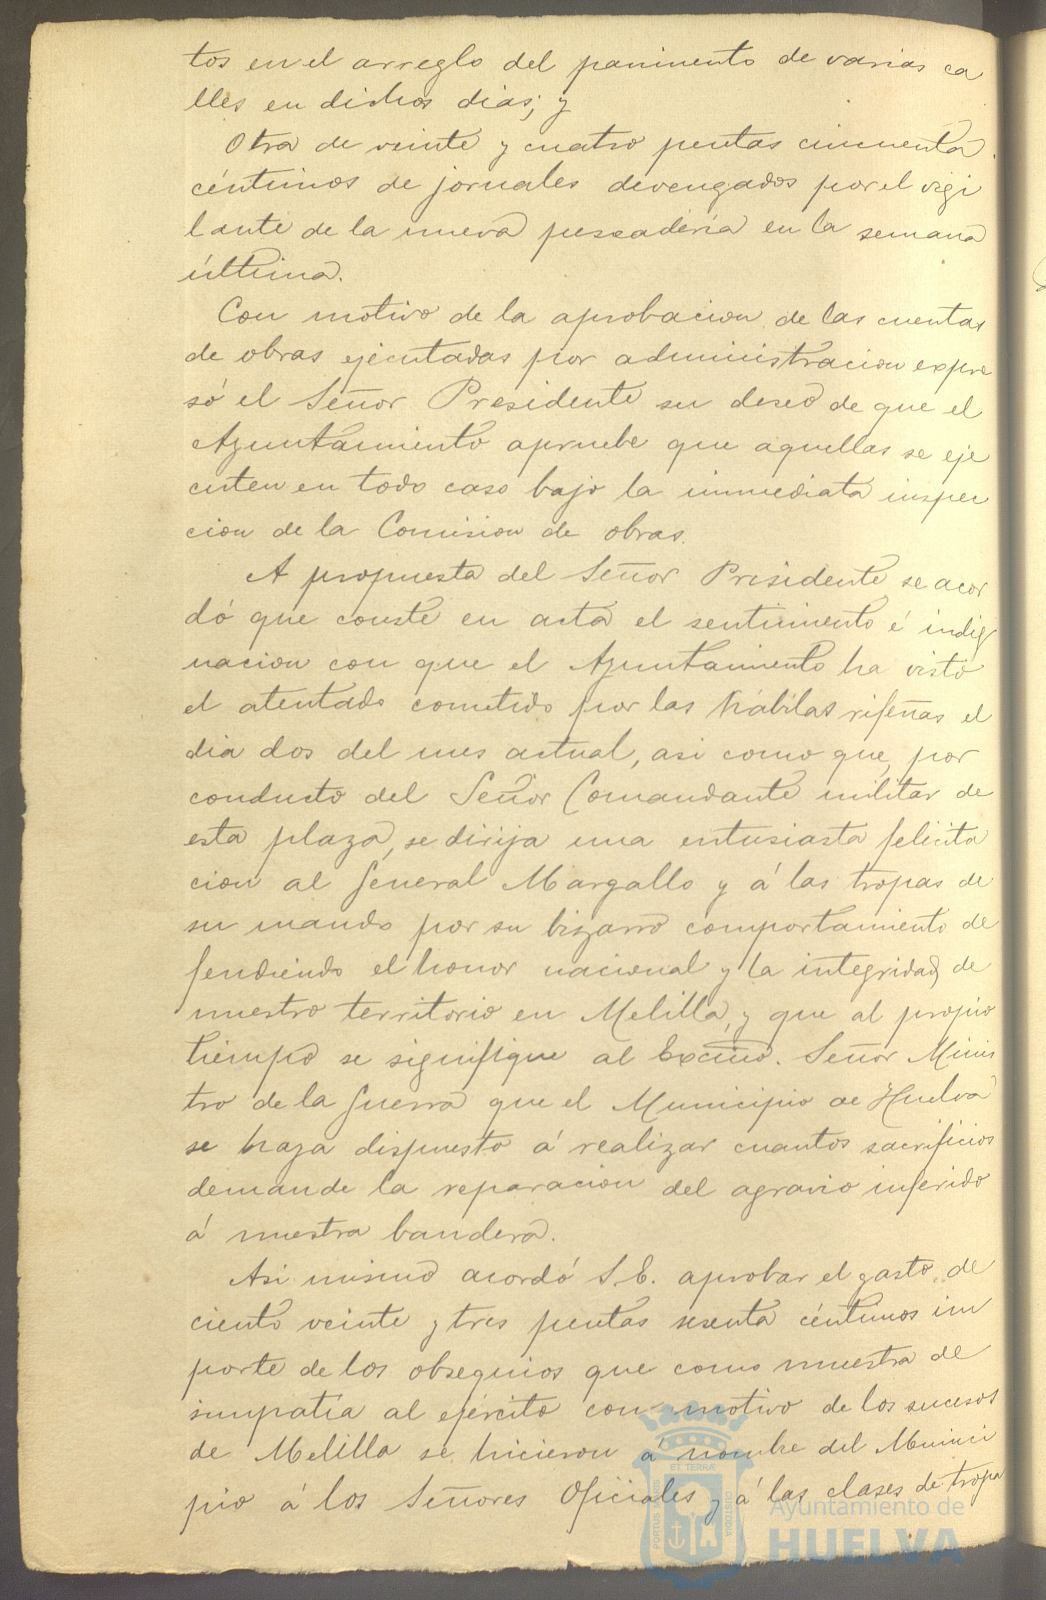 tos en el arreglo del pavimento de varias ca
lles en dichos dias; y
Otra de veinte y cuatro pesetas cincuenta
céntimos de jornales devengados por el vigi
lante de la nueva pescadería en la semana
última.
Con motivo de la aprobacion de las cuentas
de obras ejecutadas por administracion expre
só el Señor Presidente su deseo de que el
Ayuntamiento apruebe que aquellas se eje
cuten en todo caso bajo la inmediata inspec
cion de la Comision de obras.
A propuesta del Señor Presidente se acor
dó que conste en acta el sentimiento é indig
nacion con que el Ayuntamiento ha visto
el atentado cometido por las kábilas rifeñas el
dia dos del mes actual, asi como que, por
conducto del Señor Comandante militar de
esta plaza, se dirija una entusiasta felicita
cion al General Margallo y á las tropas de
su mando por su bizarro comportamiento de
fendiendo el honor nacional y la integridad de
nuestro territorio en Melilla, y que al propio
tiempo se signifique al Excmo. Señor Minis
tro de la Guerra que el Municipio de Huelva
se haya dispuesto á realizar cuantos sacrificios
demande la reparacion del agravio inferido
á nuestra bandera.
Asi mismo acordó S.E. aprobar el gasto de
ciento veinte y tres pesetas sesenta céntimos im
porte de los obsequios que como muestra de
simpatía al ejército con motivo de los sucesos
de Melilla se hicieron á nombre del Munici
pio á los Señores Oficiales y á las clases de tropa
ET TERRA
PORTUS MARIS
CUSTODIA
Ayuntamiento de
HUELVA